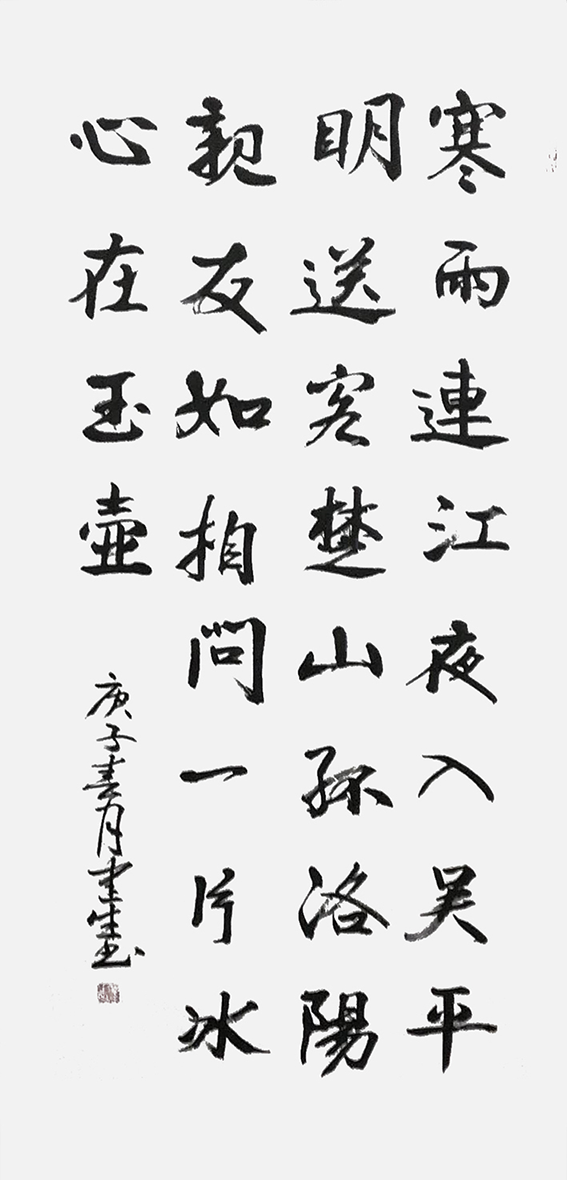 寒雨連江夜入吴平
明送客楚山孤洛陽
親友如相問一片冰
心在玉壺
庚子春月